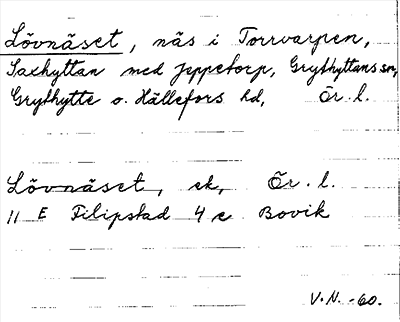 Lövnäset, näs i Torrvarpen,
Saxhyttan med Jeppetorp, Grythyttans sn,
Grythytte o. Hällefors hd, Ör. l.
Lövnäset, ek, Ör. l.
11 E Filipstad 4 c Bovik
V.N. -60.